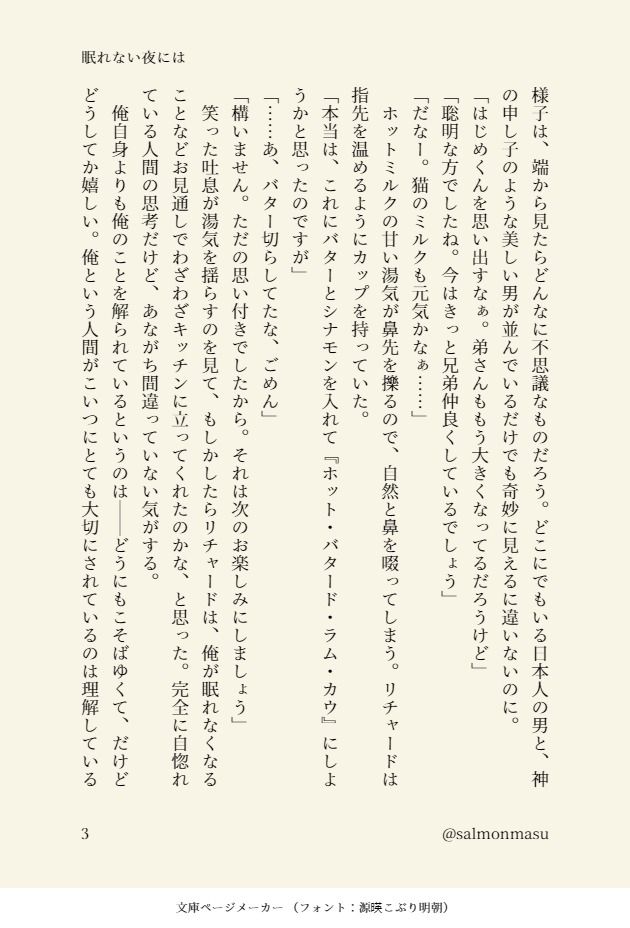 眠れない夜には
様子は、端から見たらどんなに不思議なものだろう。どこにでもいる日本人の男と、神
の申し子のような美しい男が並んでいるだけでも奇妙に見えるに違いないのに。
「はじめくんを思い出すなぁ。弟さんももう大きくなってるだろうけど」
「聡明な方でしたね。今はきっと兄弟仲良くしているでしょう」
「だなー。猫のミルクも元気かなぁ……」
　ホットミルクの甘い湯気が鼻先を擽るので、自然と鼻を啜ってしまう。リチャードは
指先を温めるようにカップを持っていた。
「本当は、これにバターとシナモンを入れて『ホット・バタード・ラム・カウ』にしよ
うかと思ったのですが」
「……あ、バター切らしてたな、ごめん」
「構いません。ただの思い付きでしたから。それは次のお楽しみにしましょう」
　笑った吐息が湯気を揺らすのを見て、もしかしたらリチャードは、俺が眠れなくなる
ことなどお見通しでわざわざキッチンに立ってくれたのかな、と思った。完全に自惚れ
ている人間の思考だけど、あながち間違っていない気がする。
　俺自身よりも俺のことを解られているというのは――どうにもこそばゆくて、だけど
どうしてか嬉しい。俺という人間がこいつにとても大切にされているのは理解している
3
@salmonmasu
文庫ページメーカー （フォント：源暎こぶり明朝）